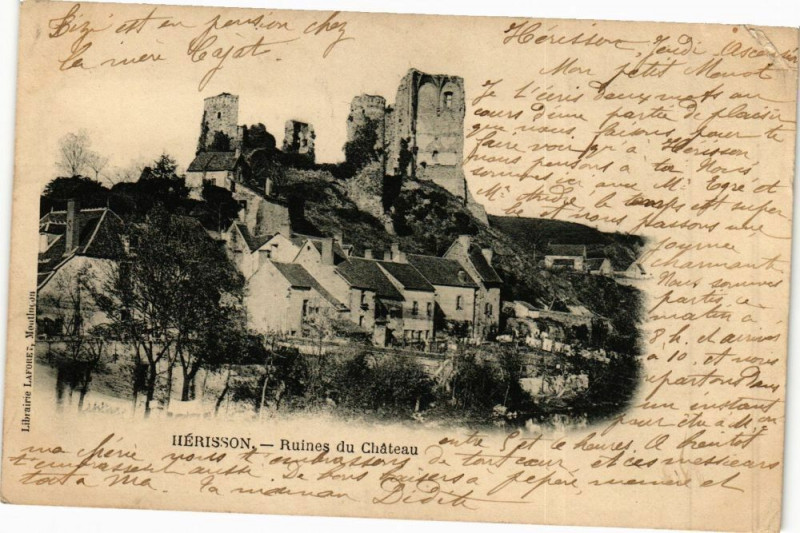 Hérisson, Jeudi Ascension
Mon petit
Je t'écris deux mots au
cours d'une partie de plaisir
que nous faisons, pour te
faire voir qu'à Hérisson
nous pensons à toi. Nous
sommes ici avec Mr et
Mr André le temps est super
be et nous passons une
journée
charmante
Nous sommes
partis ce
matin à
8 h. et arrivés
à 10 et nous
repartons dans
un instant
pour être à Mon
entre 5 et 6 heures. A bientôt
ma chérie nous t'embrassons de tout cœur, et ces messieurs
t'embrassent aussi. De bons baisers à pépère, mémère et
ta maman
Zizi est en pension chez
la mère Cajat.
HÉRISSON. — Ruines du Château
Librairie LAFORET, Montluçon